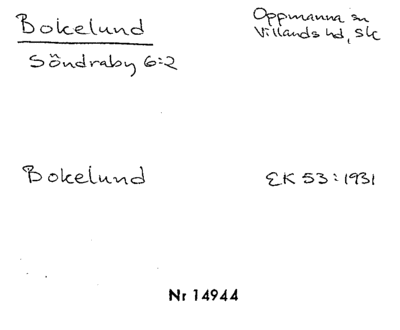 Bokelund
Oppmanna sn
Villands hd, Sk
Söndraby 6:2
Bokelund
EK 53:1931
Nr 14944